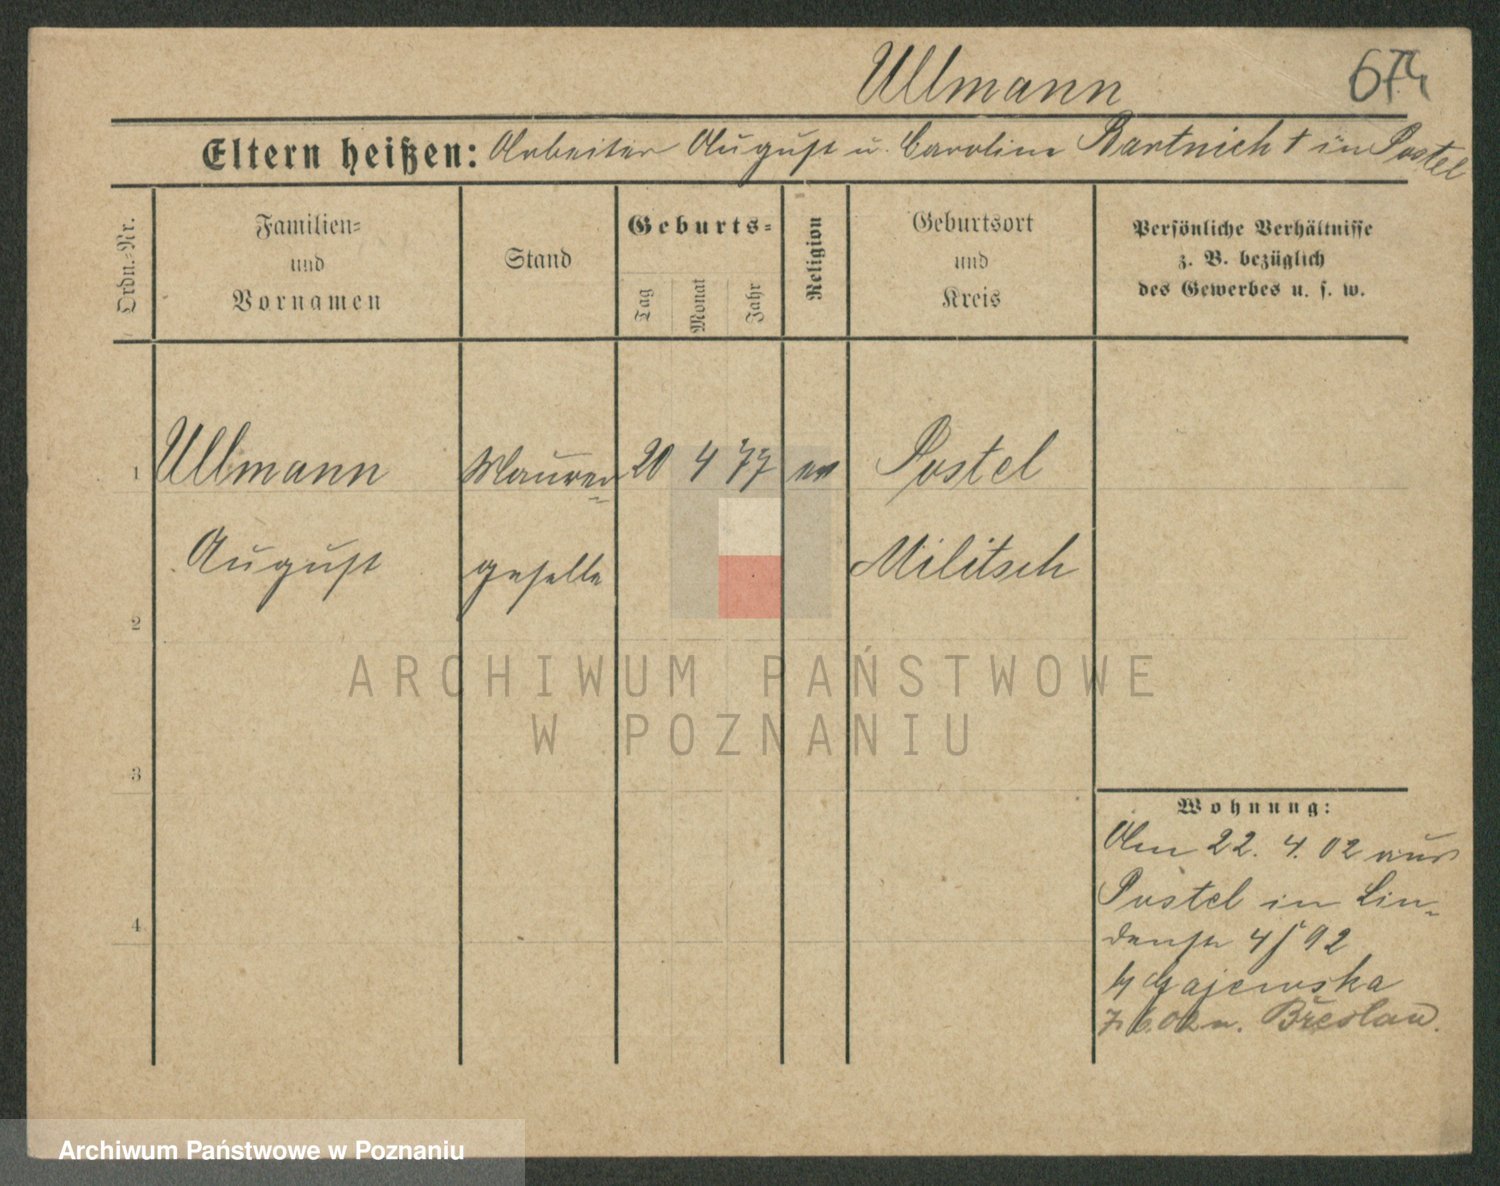 Ullmann 674
Eltern heißen: Arbeiter August u. Caroline Bartnich † in Postel
Ordn.-Nr.
Familien-
und
Vornamen
Stand
Geburts-
Tag
Monat
Jahr
Religion
Geburtsort
und
Kreis
Persönliche Verhältnisse
z. B. bezüglich
des Gewerbes u. s. w.
1 Ullmann Maurer- 20 4 77 ev Postel
August geselle Militsch
2
ARCHIWUM PAŃSTWOWE
W POZNANIU
3
Wohnung:
Am 22. 4. 02 aus
Postel in Lin-
4
denstr 4/92
Gajewska
7. 6. 02 n. Breslau.
Archiwum Państwowe w Poznaniu